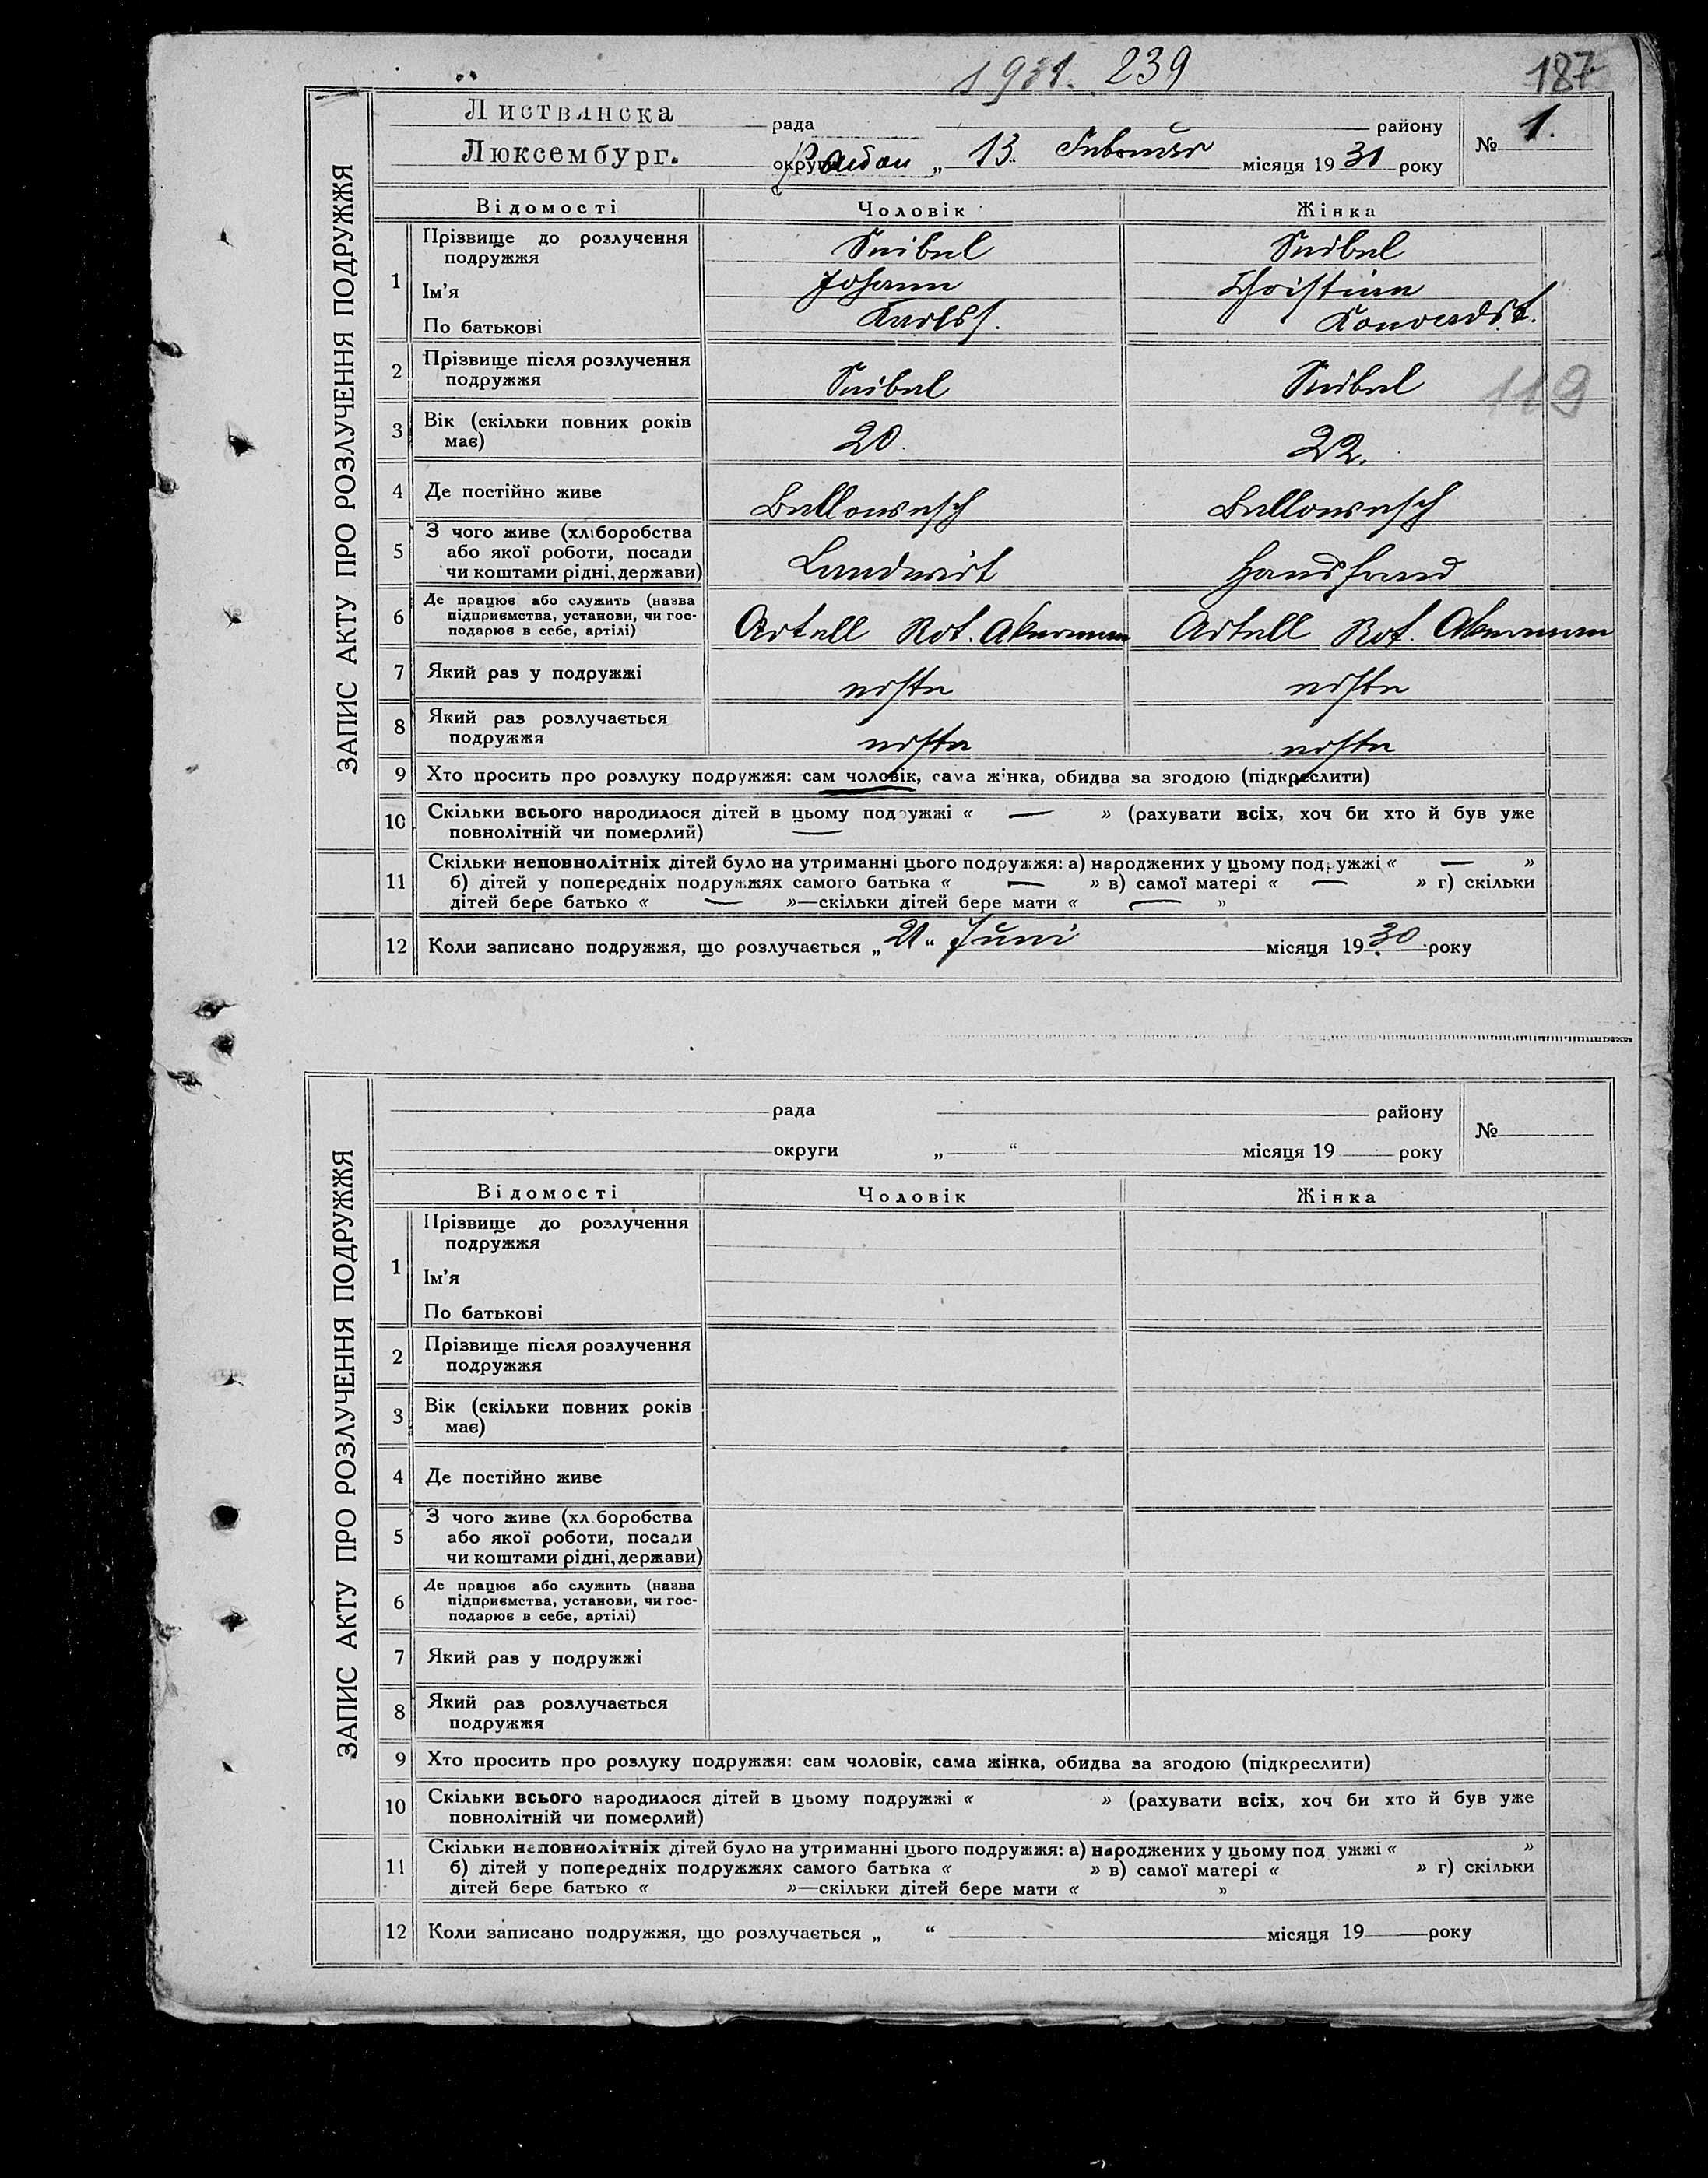 1931. 239
187
Листвянска рада району
Люксембург. округи Район „ 13 “ Februar місяця 1931 року
№ 1.
ЗАПИС АКТУ ПРО РОЗЛУЧЕННЯ ПОДРУЖЖЯ
Відомості Чоловік Жінка
1 Прізвище до розлучення
подружжя
Ім’я Johann Christina
По батькові Karlss. Konradst.
2 Прізвище після розлучення
подружжя 119
3 Вік (скільки повних років
має) 20. 22.
4 Де постійно живе
5 З чого живе (хліборобства
або якої роботи, посади
чи коштами рідні, держави) Landwirt
6 Де працює або служить (назва
підприємства, установи, чи гос-
подарює в себе, артілі) Artell Rot. Akerman Artell Rot. Akerman
7 Який раз у подружжі erste erste
8 Який раз розлучається
подружжя erste erste
9 Хто просить про розлуку подружжя: сам чоловік, сама жінка, обидва за згодою (підкреслити)
10 Скільки всього народилося дітей в цьому подружжі « — » (рахувати всіх, хоч би хто й був уже
повнолітній чи померлий) —
11 Скільки неповнолітніх дітей було на утриманні цього подружжя: а) народжених у цьому подружжі « — »
б) дітей у попередніх подружжях самого батька « — » в) самої матері « — » г) скільки
дітей бере батько « — »—скільки дітей бере мати « — »
12 Коли записано подружжя, що розлучається „ 21 “ Juni місяця 1930 року
рада району
округи „ “ місяця 19 року
№
ЗАПИС АКТУ ПРО РОЗЛУЧЕННЯ ПОДРУЖЖЯ
Відомості Чоловік Жінка
1 Прізвище до розлучення
подружжя
Ім’я
По батькові
2 Прізвище після розлучення
подружжя
3 Вік (скільки повних років
має)
4 Де постійно живе
5 З чого живе (хл боробства
або якої роботи, посади
чи коштами рідні, держави)
6 Де працює або служить (назва
підприємства, установи, чи гос-
подарює в себе, артілі)
7 Який раз у подружжі
8 Який раз розлучається
подружжя
9 Хто просить про розлуку подружжя: сам чоловік, сама жінка, обидва за згодою (підкреслити)
10 Скільки всього народилося дітей в цьому подружжі « » (рахувати всіх, хоч би хто й був уже
повнолітній чи померлий)
11 Скільки неповнолітніх дітей було на утриманні цього подружжя: а) народжених у цьому под ужжі « »
б) дітей у попередніх подружжях самого батька « » в) самої матері « » г) скільки
дітей бере батько « »—скільки дітей бере мати « »
12 Коли записано подружжя, що розлучається „ “ місяця 19 року